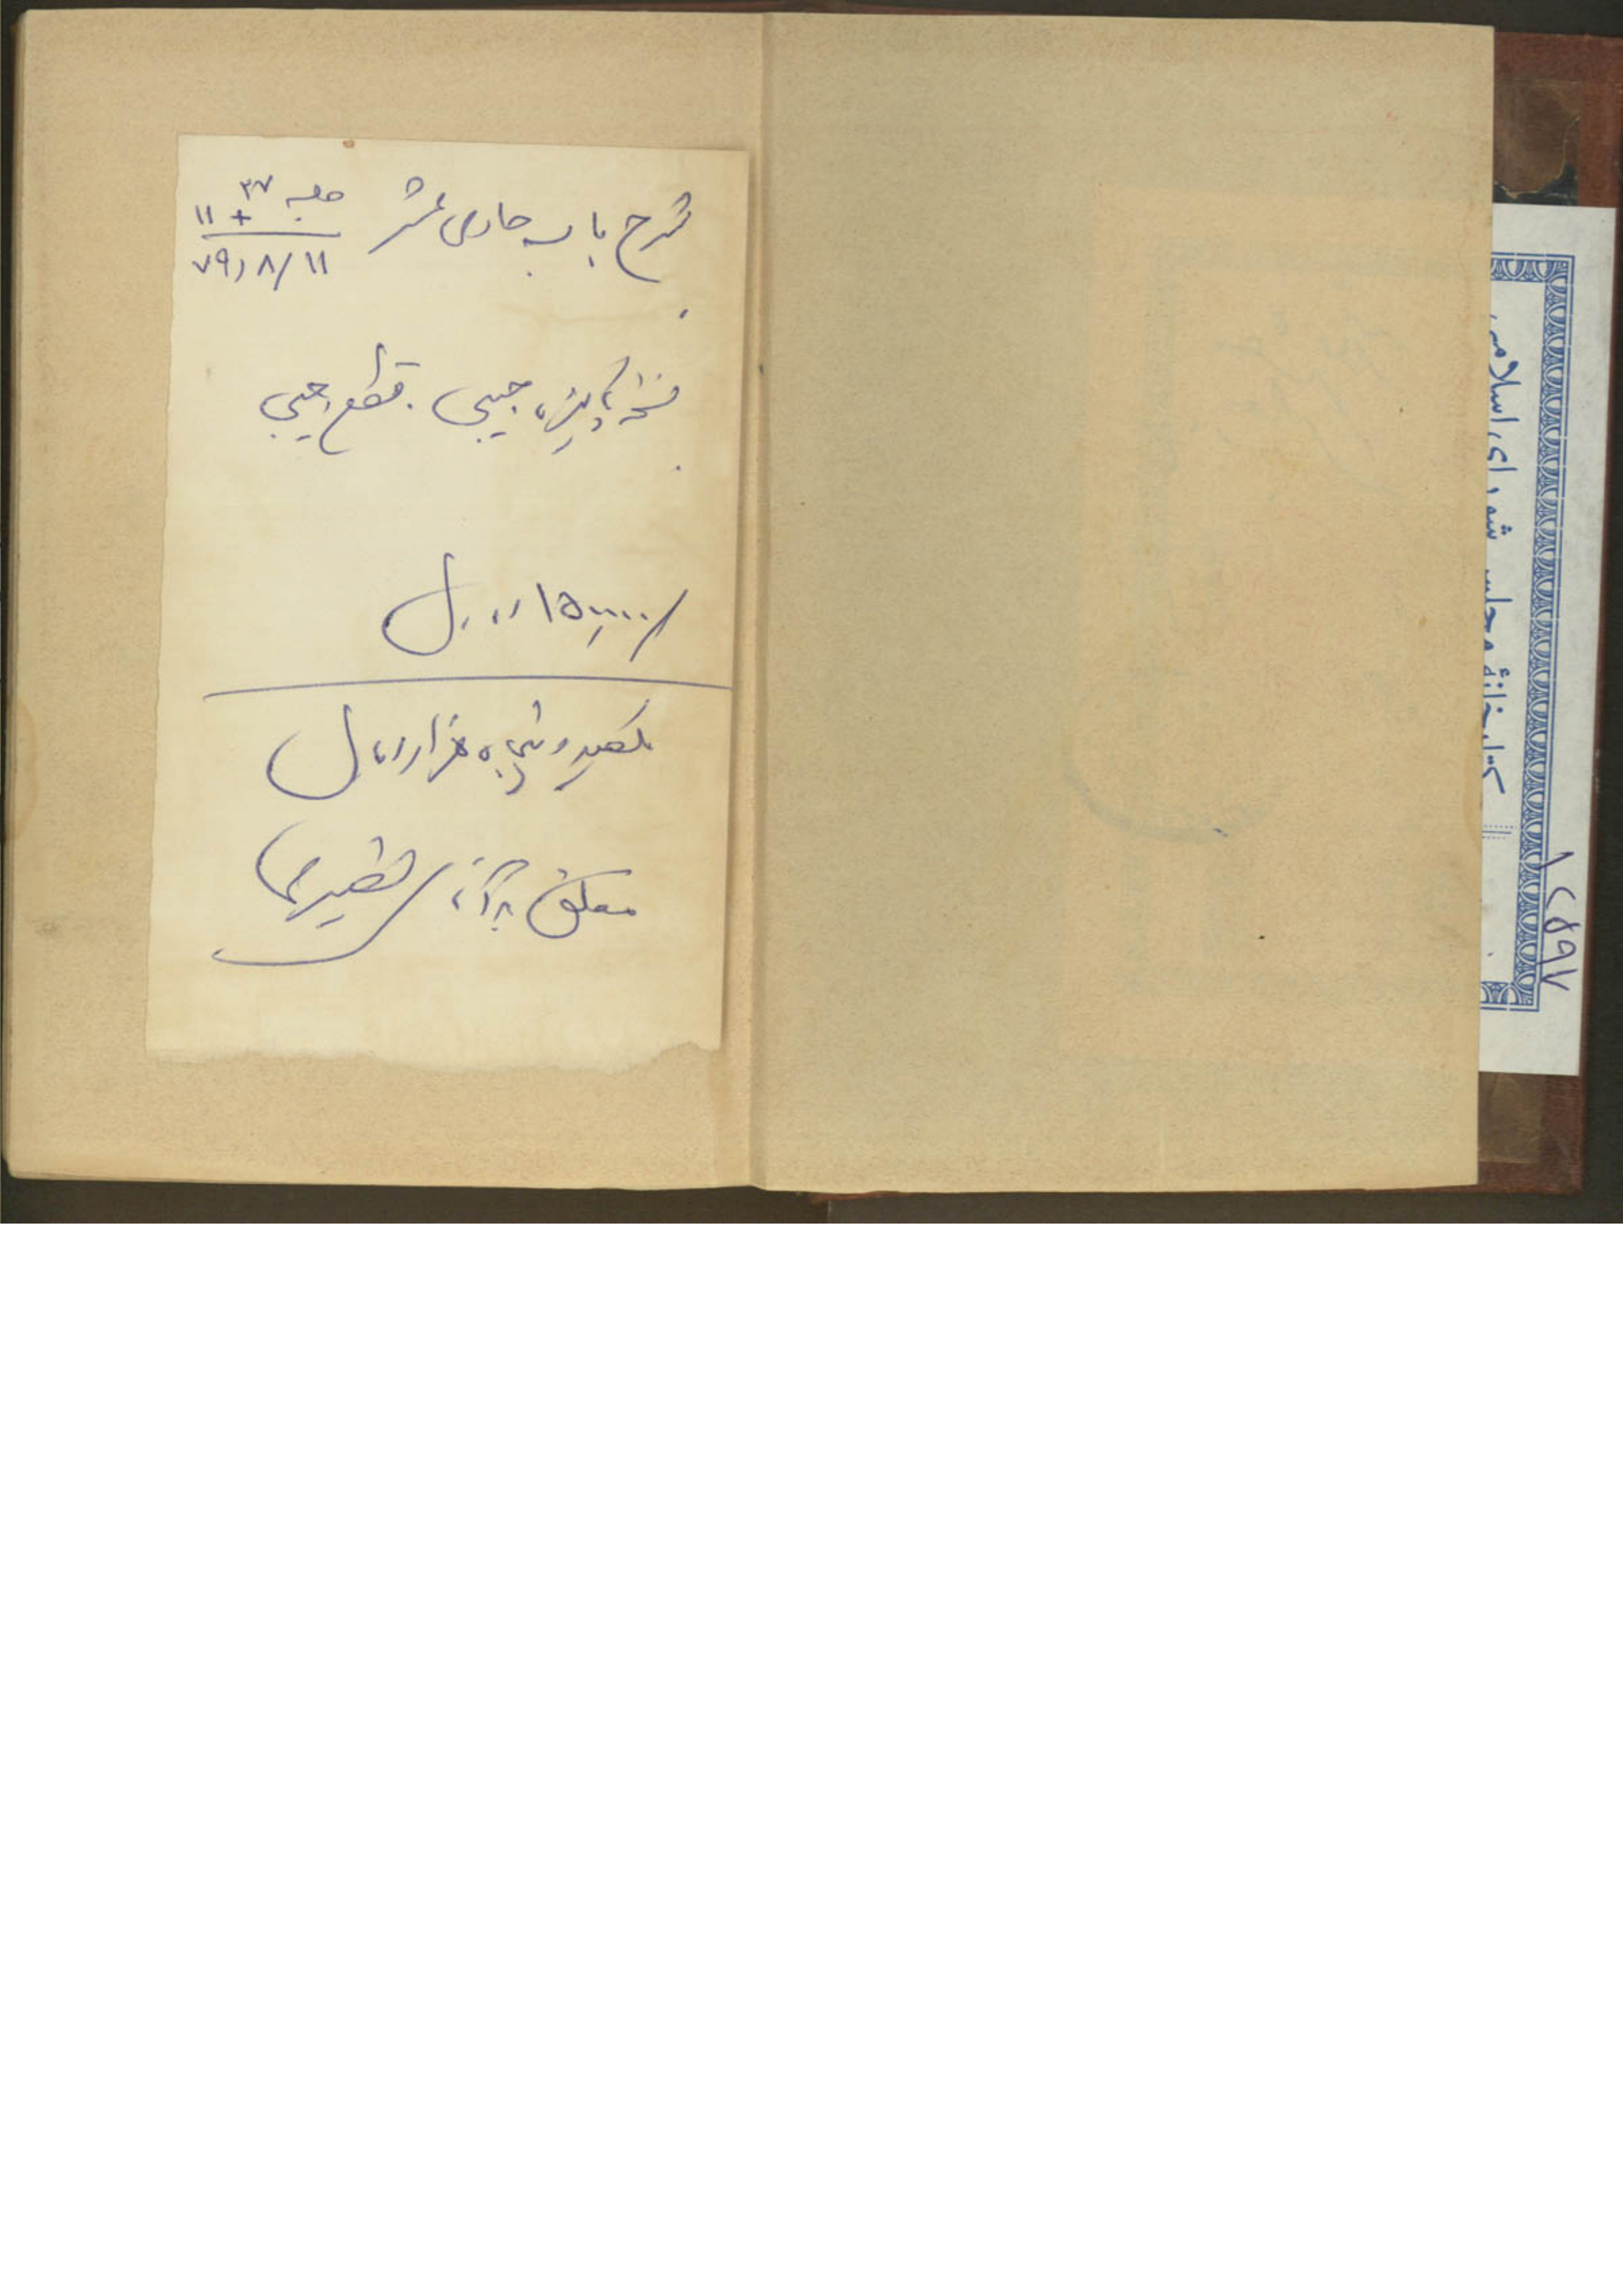 شرح باب حادی عشر
جلسه ۳۷ + ۱۱
۷۹/۸/۱۱
نسخه پاکیزه جیبی. قطع جیبی
۱۵۰۰۰۰ ریال
یکصد و پنجاه هزار ریال
متعلق به آقای
کتابخانهٔ مجلس شورای اسلامی